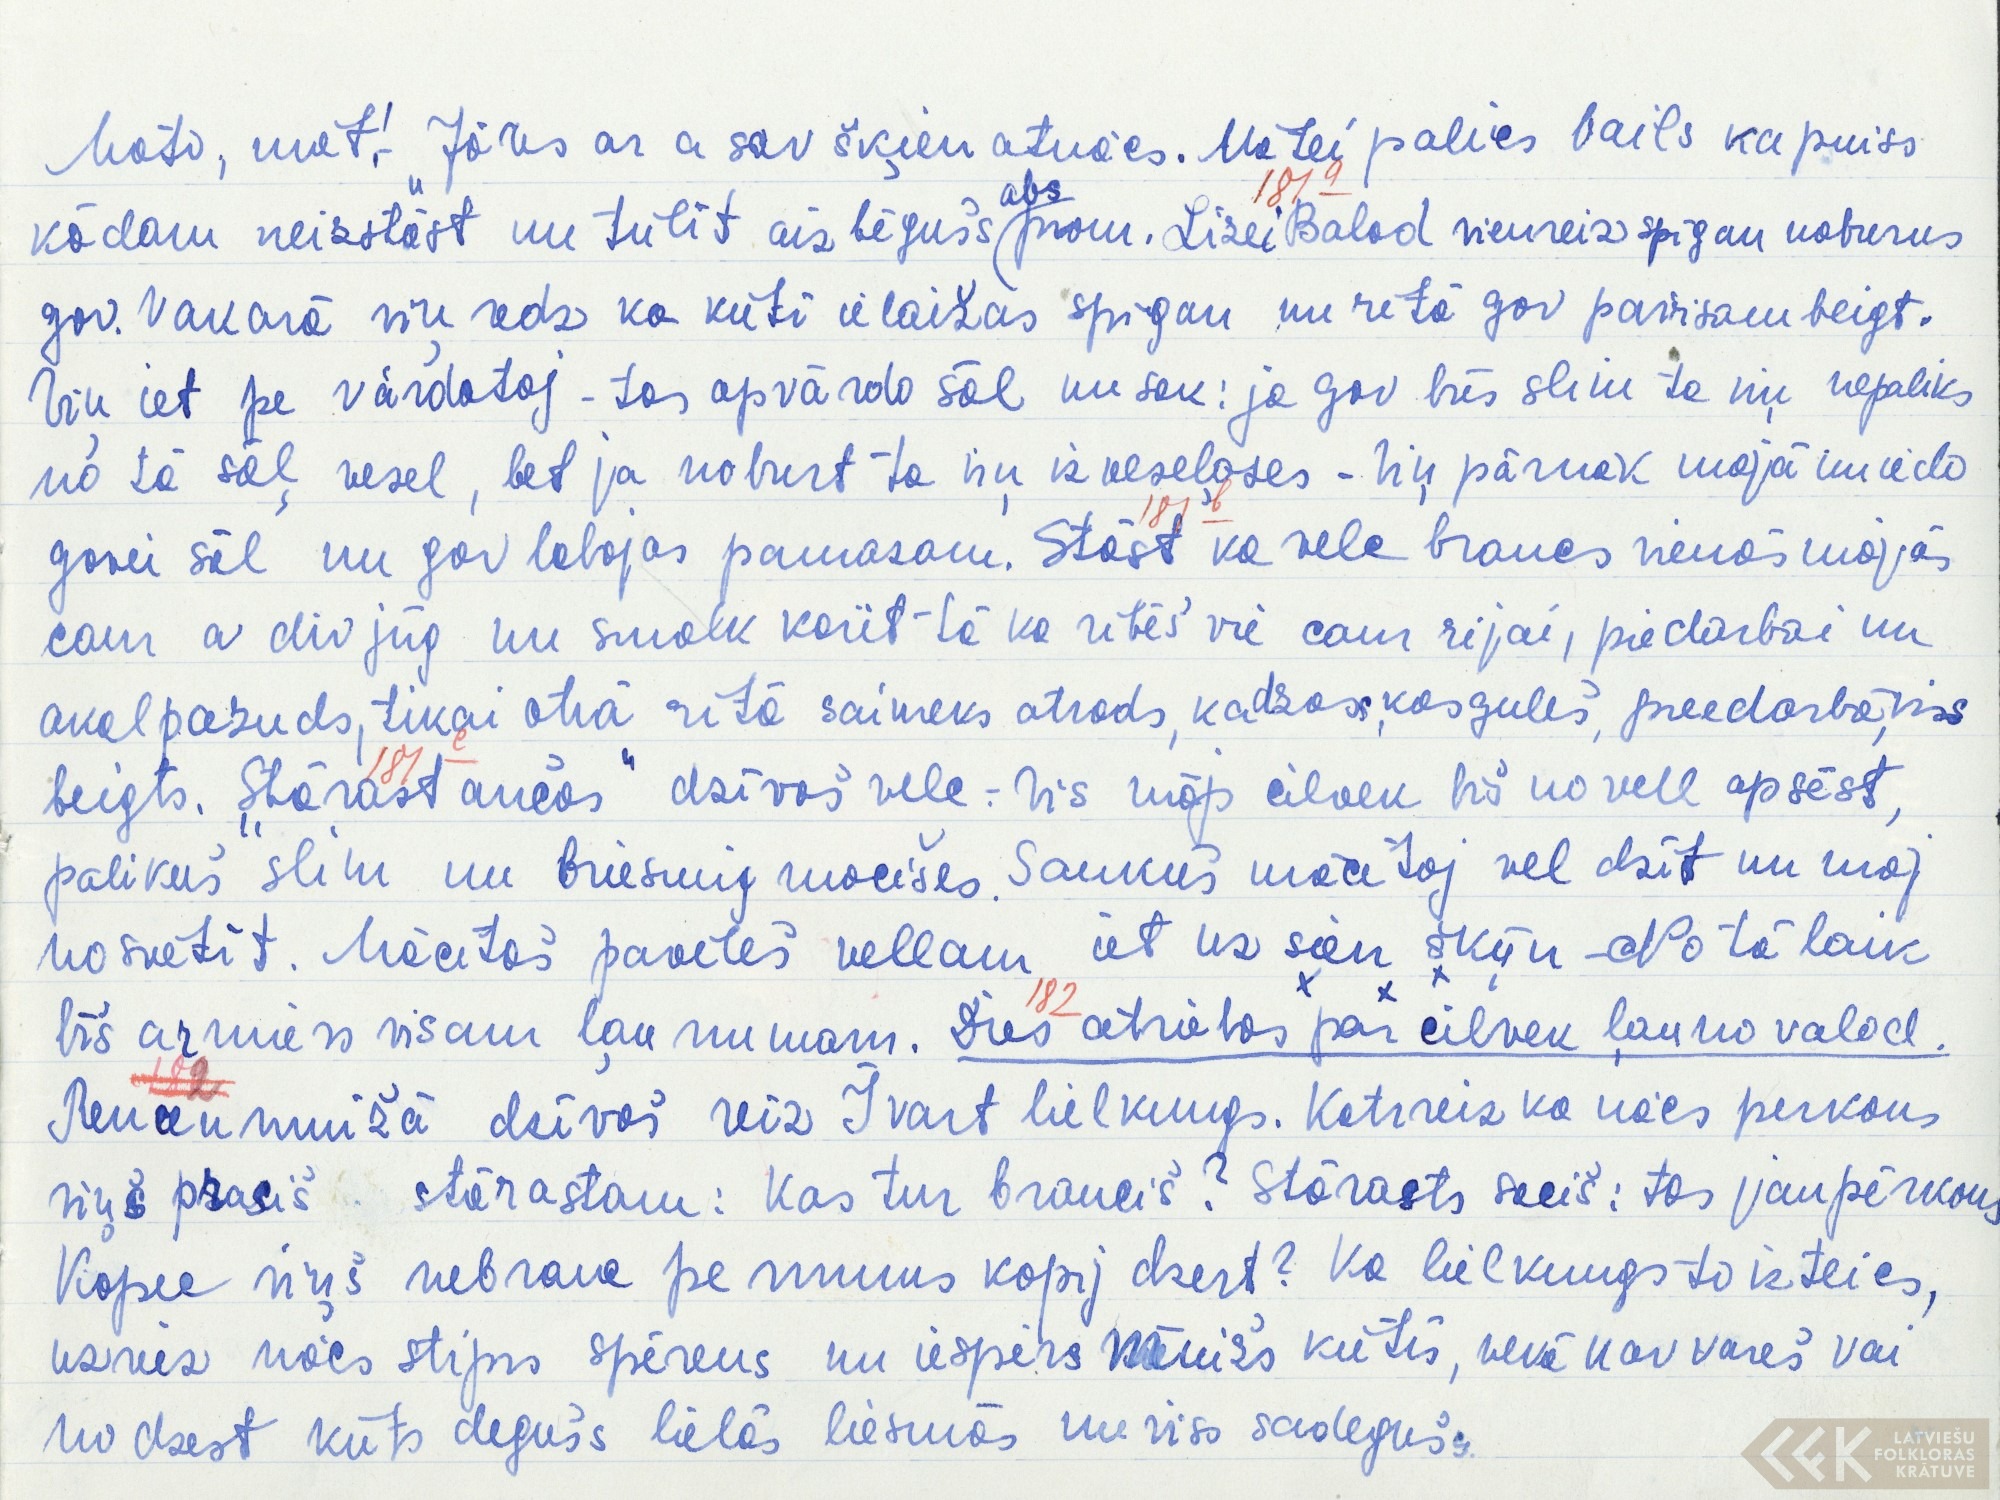 Māte, māt!- "Jāzus ar a sav šķien atnācs. Mātei palics bails ka puiss
kādam neizstāst un tulīt aizbēgušs abs prom. 181 a Lizei Balod vienreiz spīgan noburus
gov. Vakarā viņ redz ka kūtī ielaižas spīgan un rītā gov pavisam beigt.
Viņ iet pe vārdotoj - tas apvārdo sāl un sak: ja gov būs slim ta viņ nepaliks
no tā sāļ vesel, bet ja noburt - ta viņ izveseļoses - Viņ pārnak mājā un iedo
govei sāl un gov labojas pamazam. 181 b Stāst ka vele braucs vienās mājās
caur a div jūg un smalk kariet - tā ka ribēs vie caur rijai, piedarbai un
akal pazuds, tikai otrā rītā saimeks atrads, ka dzoss, kas gulēš, preedarbā, viss
beigts. 181 c "Stārastančos" dzīvoš vele - Vis māj cilvek bīš no vell apsēst,
palikuš slim un briesmig mocišes. Saukuš mācitoj vel dzīt un māj
nosvētīt. Mācitoš pavēlēš vellam iet uz sien šķūn - No tā laik
bīš ar miers visam ļaunumam. 182 Dies atriebas par cilvek ļauno valod.
182
Rencenmuižā dzīvoš reiz Īvart lielkungs. Katrreiz ka nācs perkons
viņš prasiš stārastam: Kas tur brauciš? Stārasts saciš: tas jau pērkons
Kāpee viņš nebrauc pe mums kopij dzert? Ka lielkungs to izteics,
uzreiz nācs stiprs spērens un iespērs muižs kūtis, nekā nav varēš vai
nodzest kūts degušs lielās liesmās un viss sadegušs.
LATVIEŠU
FOLKLORAS
KRĀTUVE